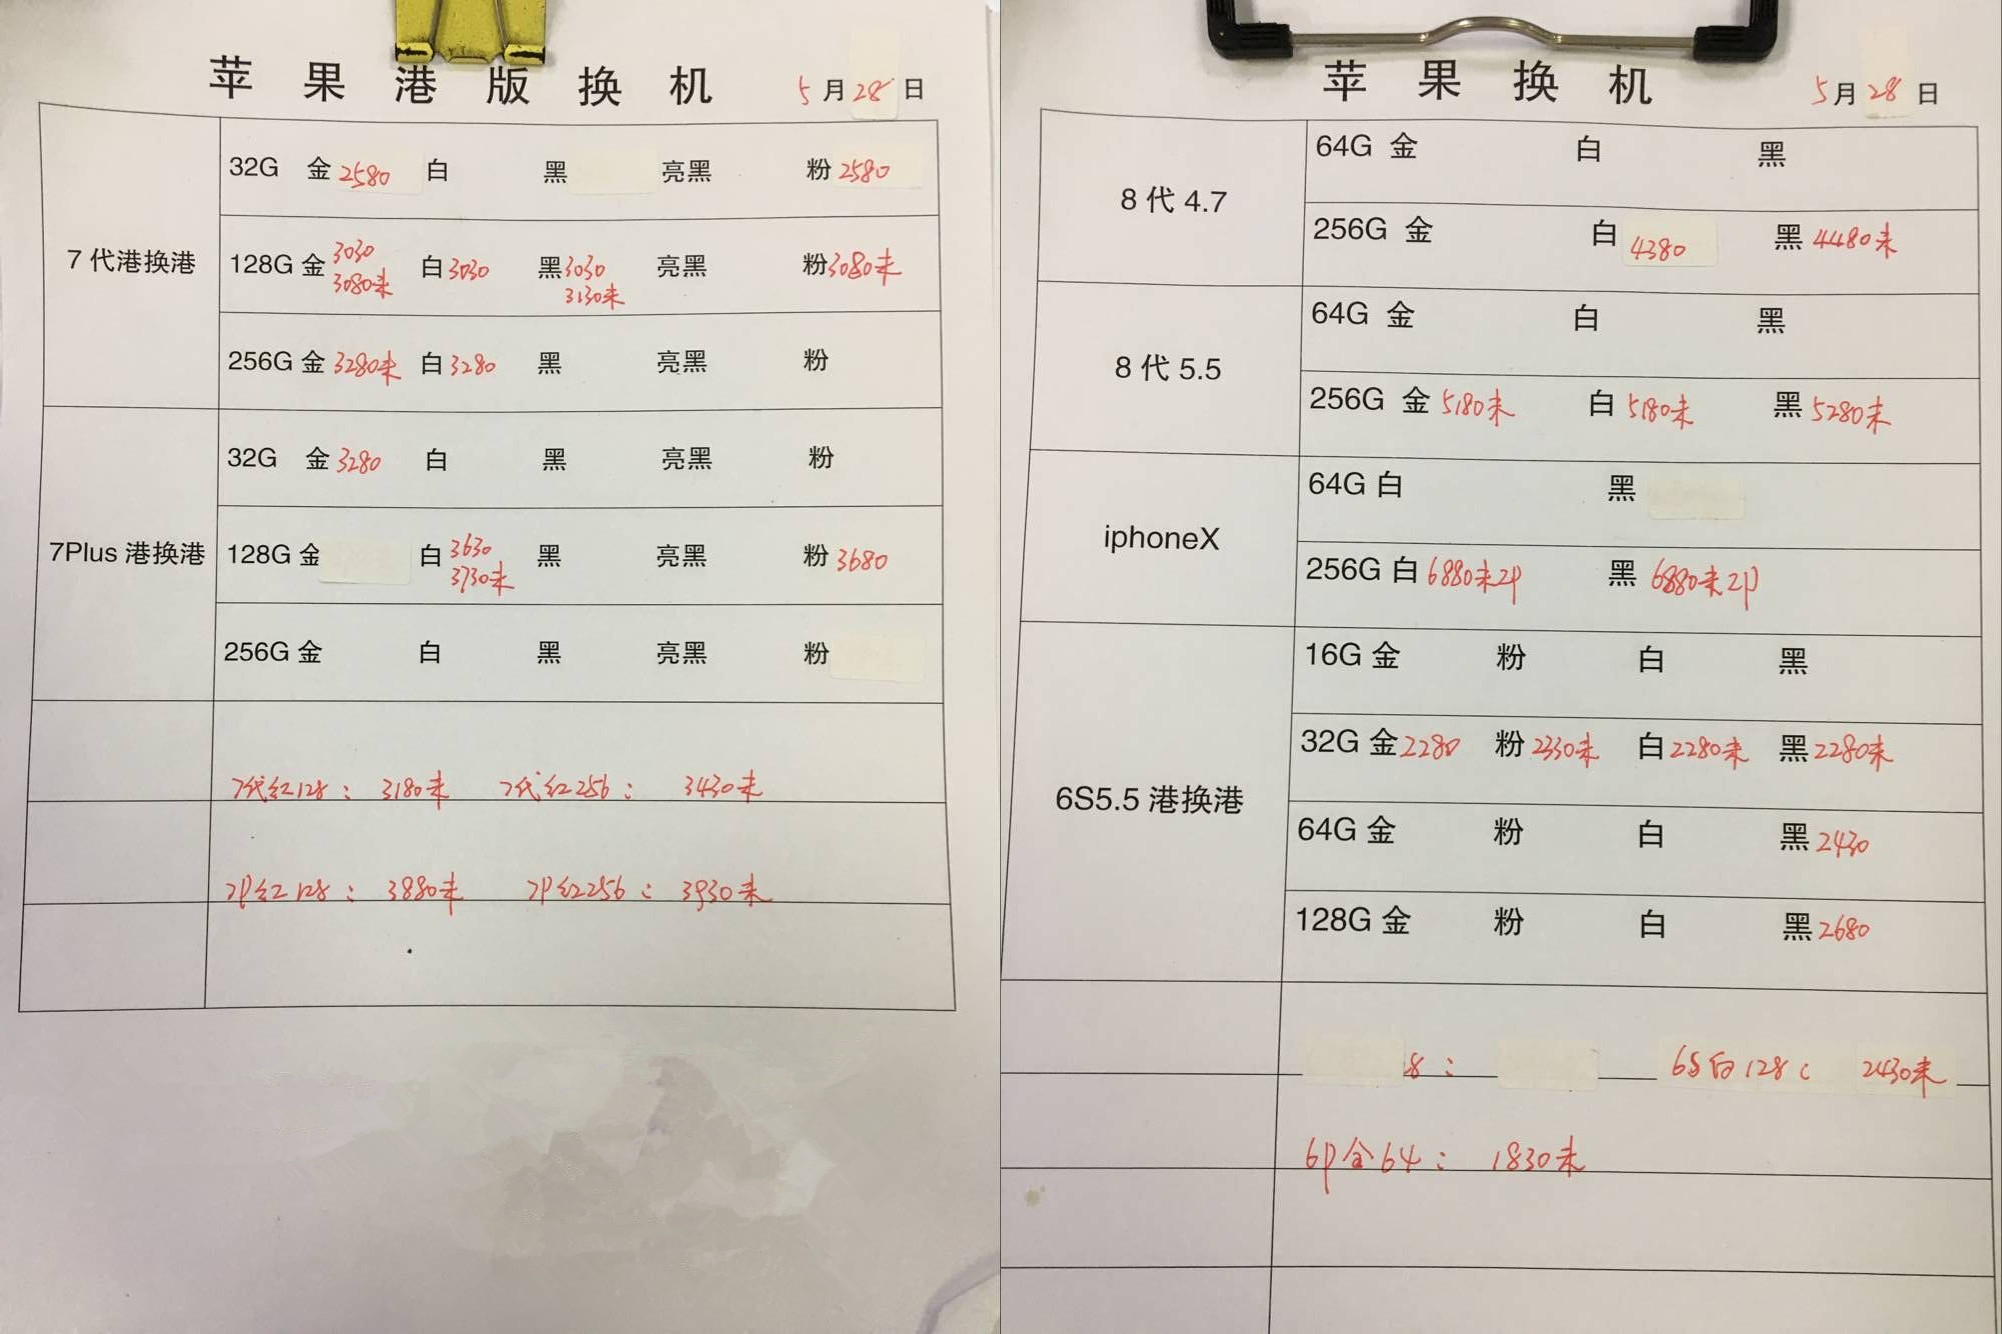 苹果港版换机 5月28日
7代港换港
32G 金2580 白 黑 亮黑 粉2580
128G 金3030 白3030 黑3030 亮黑 粉3080未
3080未 3130未
256G 金3280未 白3280 黑 亮黑 粉
7Plus 港换港
32G 金3280 白 黑 亮黑 粉
128G 金 白3630 黑 亮黑 粉3680
3730未
256G 金 白 黑 亮黑 粉
7代红128: 3180未 7代红256: 3430未
7P红128: 3880未 7P红256: 3930未
苹果换机 5月28日
8代 4.7
64G 金 白 黑
256G 金 白4380 黑4480未
8代 5.5
64G 金 白 黑
256G 金5180未 白5180未 黑5280未
iphoneX
64G 白 黑
256G 白6880未2P 黑6880未2P
6S5.5 港换港
16G 金 粉 白 黑
32G 金2280 粉2330未 白2280未 黑2280未
64G 金 粉 白 黑2430
128G 金 粉 白 黑2680
8: 6S白128: 2430未
6P金64: 1830未